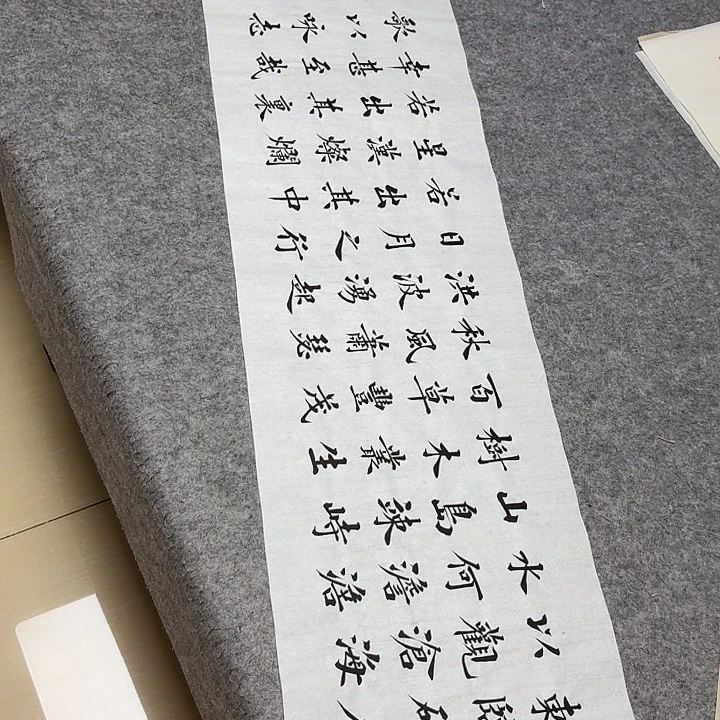 東
以觀滄海
水何澹澹
山島竦峙
樹木叢生
百草豐茂
秋風蕭瑟
洪波湧起
日月之行
若出其中
星漢燦爛
若出其裏
幸甚至哉
歌以咏志